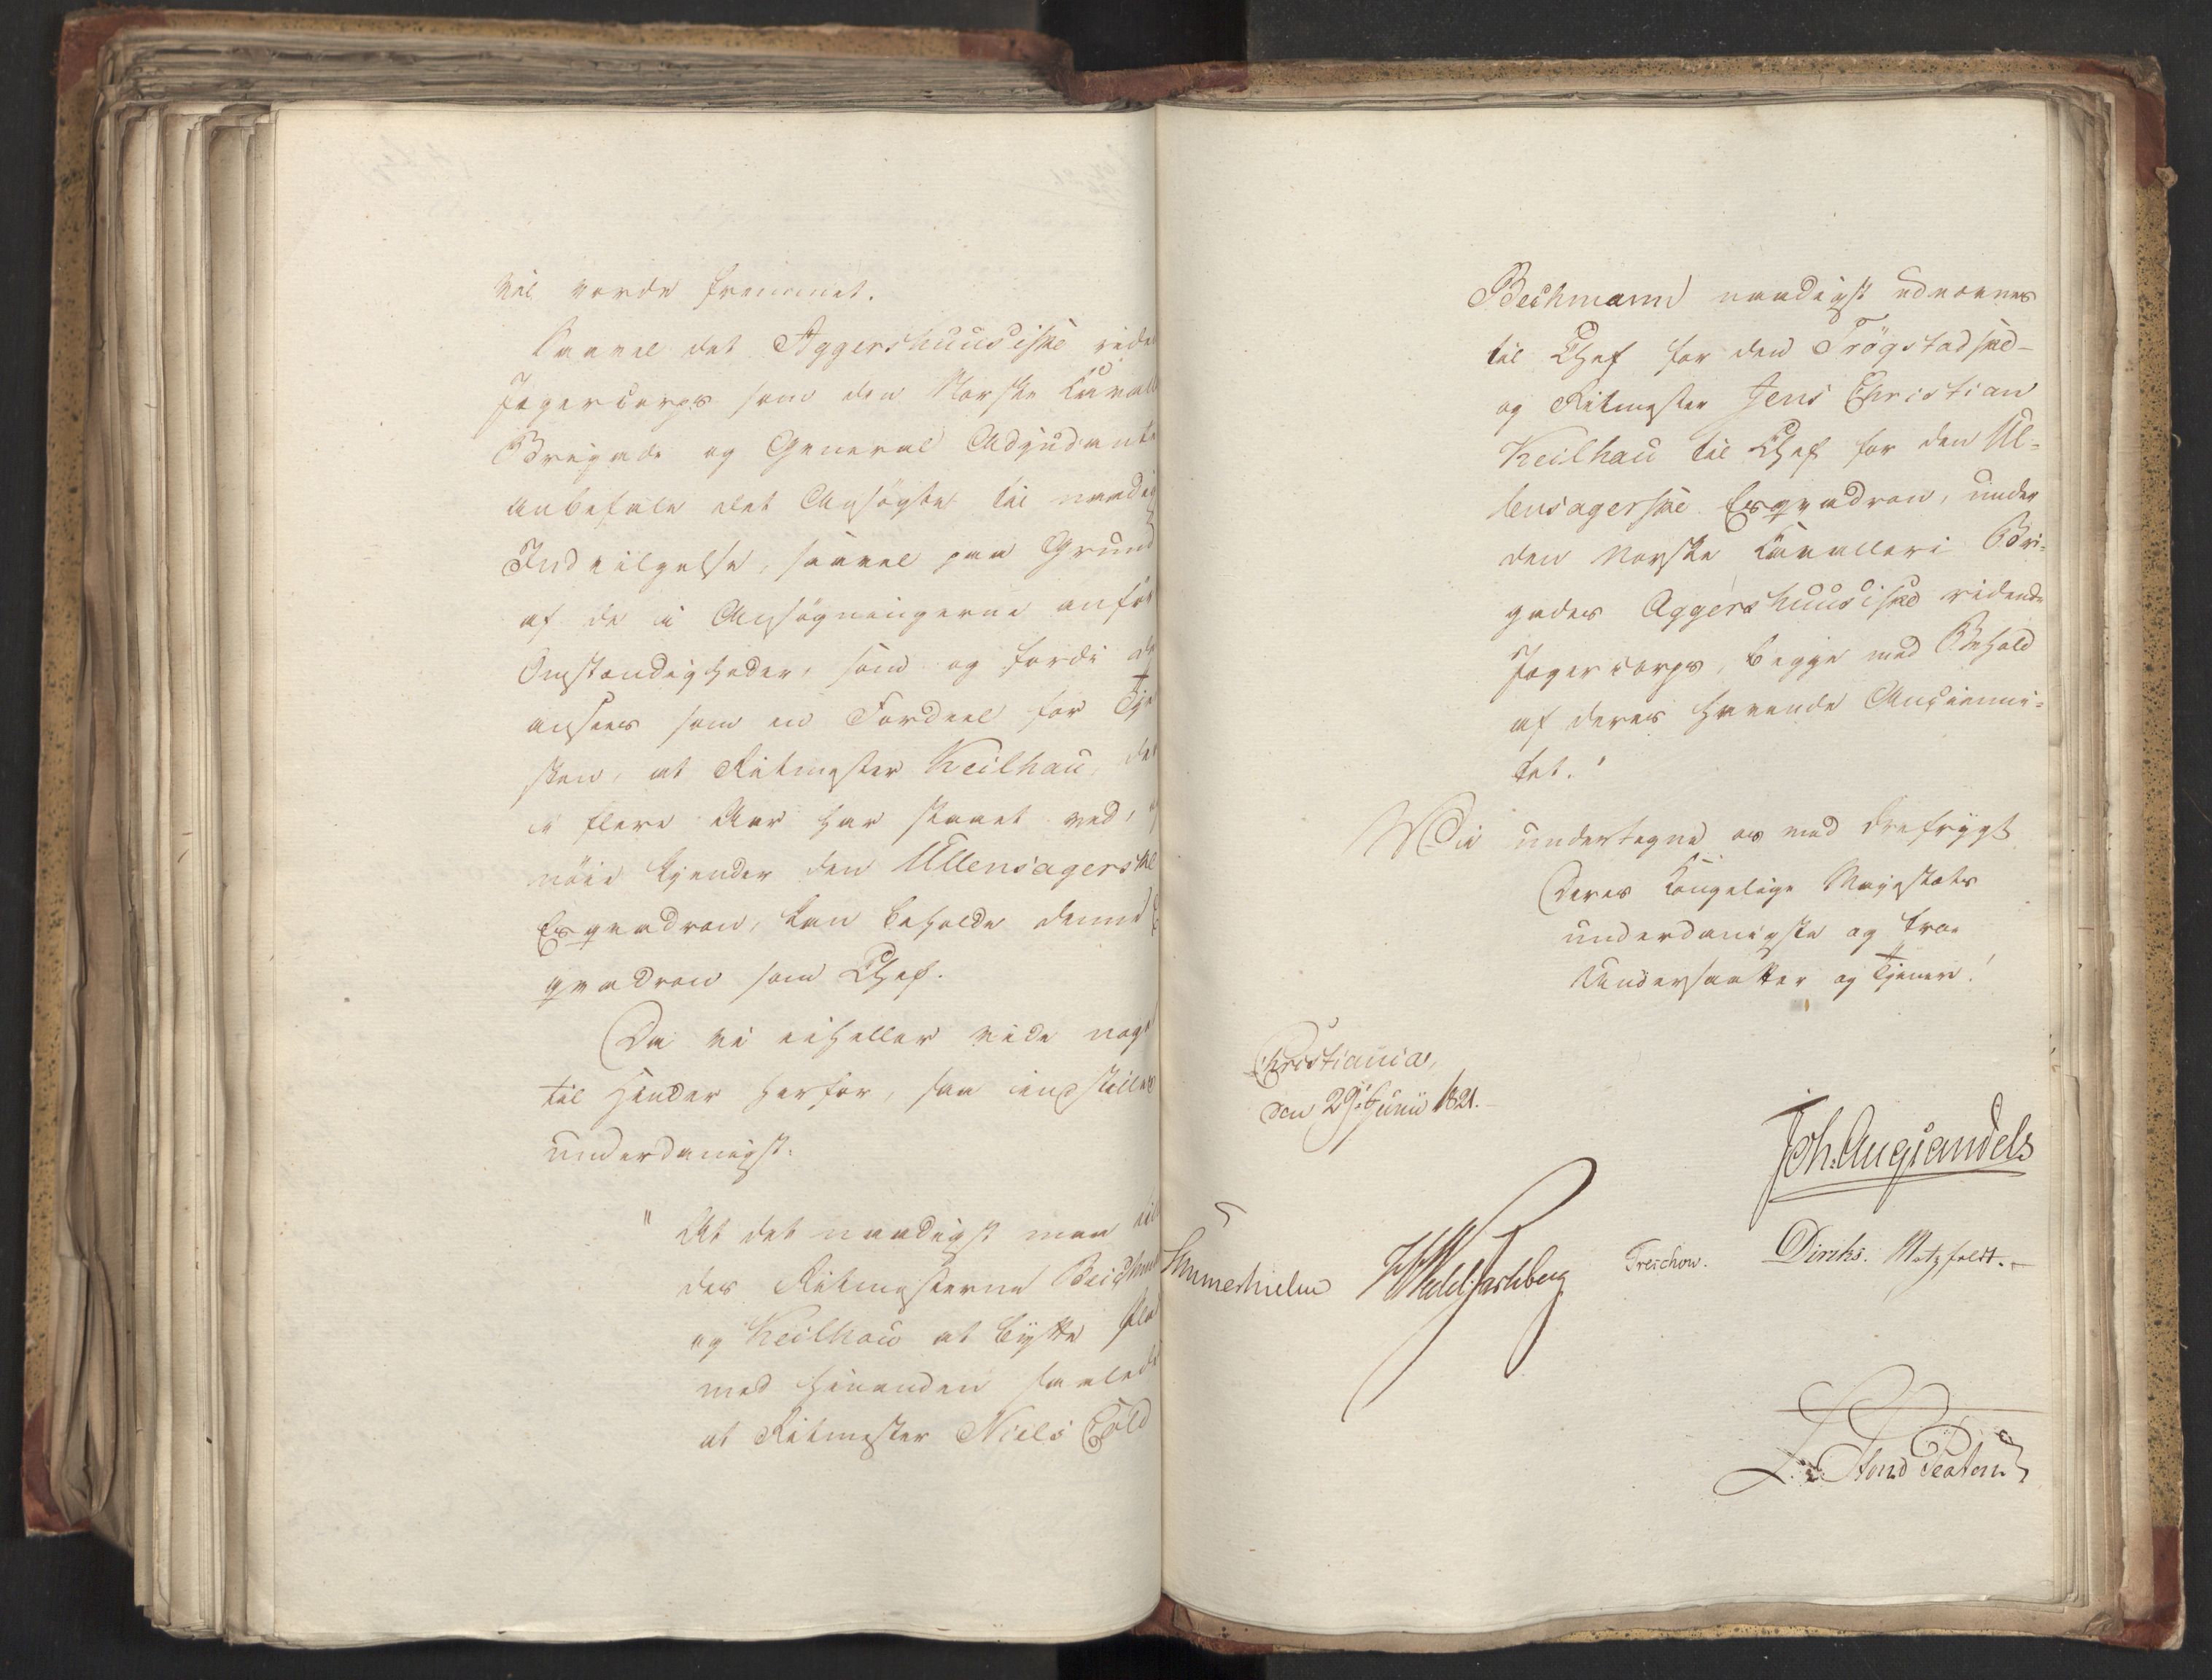 vil vorde fremmet.
Saavel det Aggershuusiske ride
Jægercorps som den Norske Cavall
Brigade og General Adjudante
anbefale det Ansøgte til naadig
Indvilgelse, saavel paa Grund
af de i Ansøgningerne anfør
Omstændigheder, som og fordi de
ansees som en Fordeel for Tje
sten, at Ritmester Keilhau, der
i flere Aar har staaet ved, o
nöie kjender den Ullensagerske
Esqvadron, kan beholde denne E
qvadron som Chef.
Da vi eiheller vide noge
til Hinder herfor, saa indstilles
underdanigst:
" At det naadigst maa til
des Ritmesterne Beichm
og Keilhau at bytte Pla
med hinanden saalede
at Ritmester Niels Cold
Beichmann naadigst udnævnes
til Chef for den Trögstadske
og Ritmester Jens Christian
Keilhau til Chef for den Ul-
lensagerske Esqvadron, under
den Norske Cavalleri Bri-
gades Aggershuusiske ridende
Jæger corps, begge med Behold
af deres havende Ancienni-
tet."
Vi undertegne os med Ærefrygt
Deres Kongelige Majestæts
underdanigste og troe
Undersaatter og Tjenere!
Christiania,
den 29de Junii 1821.
Joh: Aug Sandels
Sommerhielm WedelJarlsberg Treschow. Diriks. Motzfeldt.